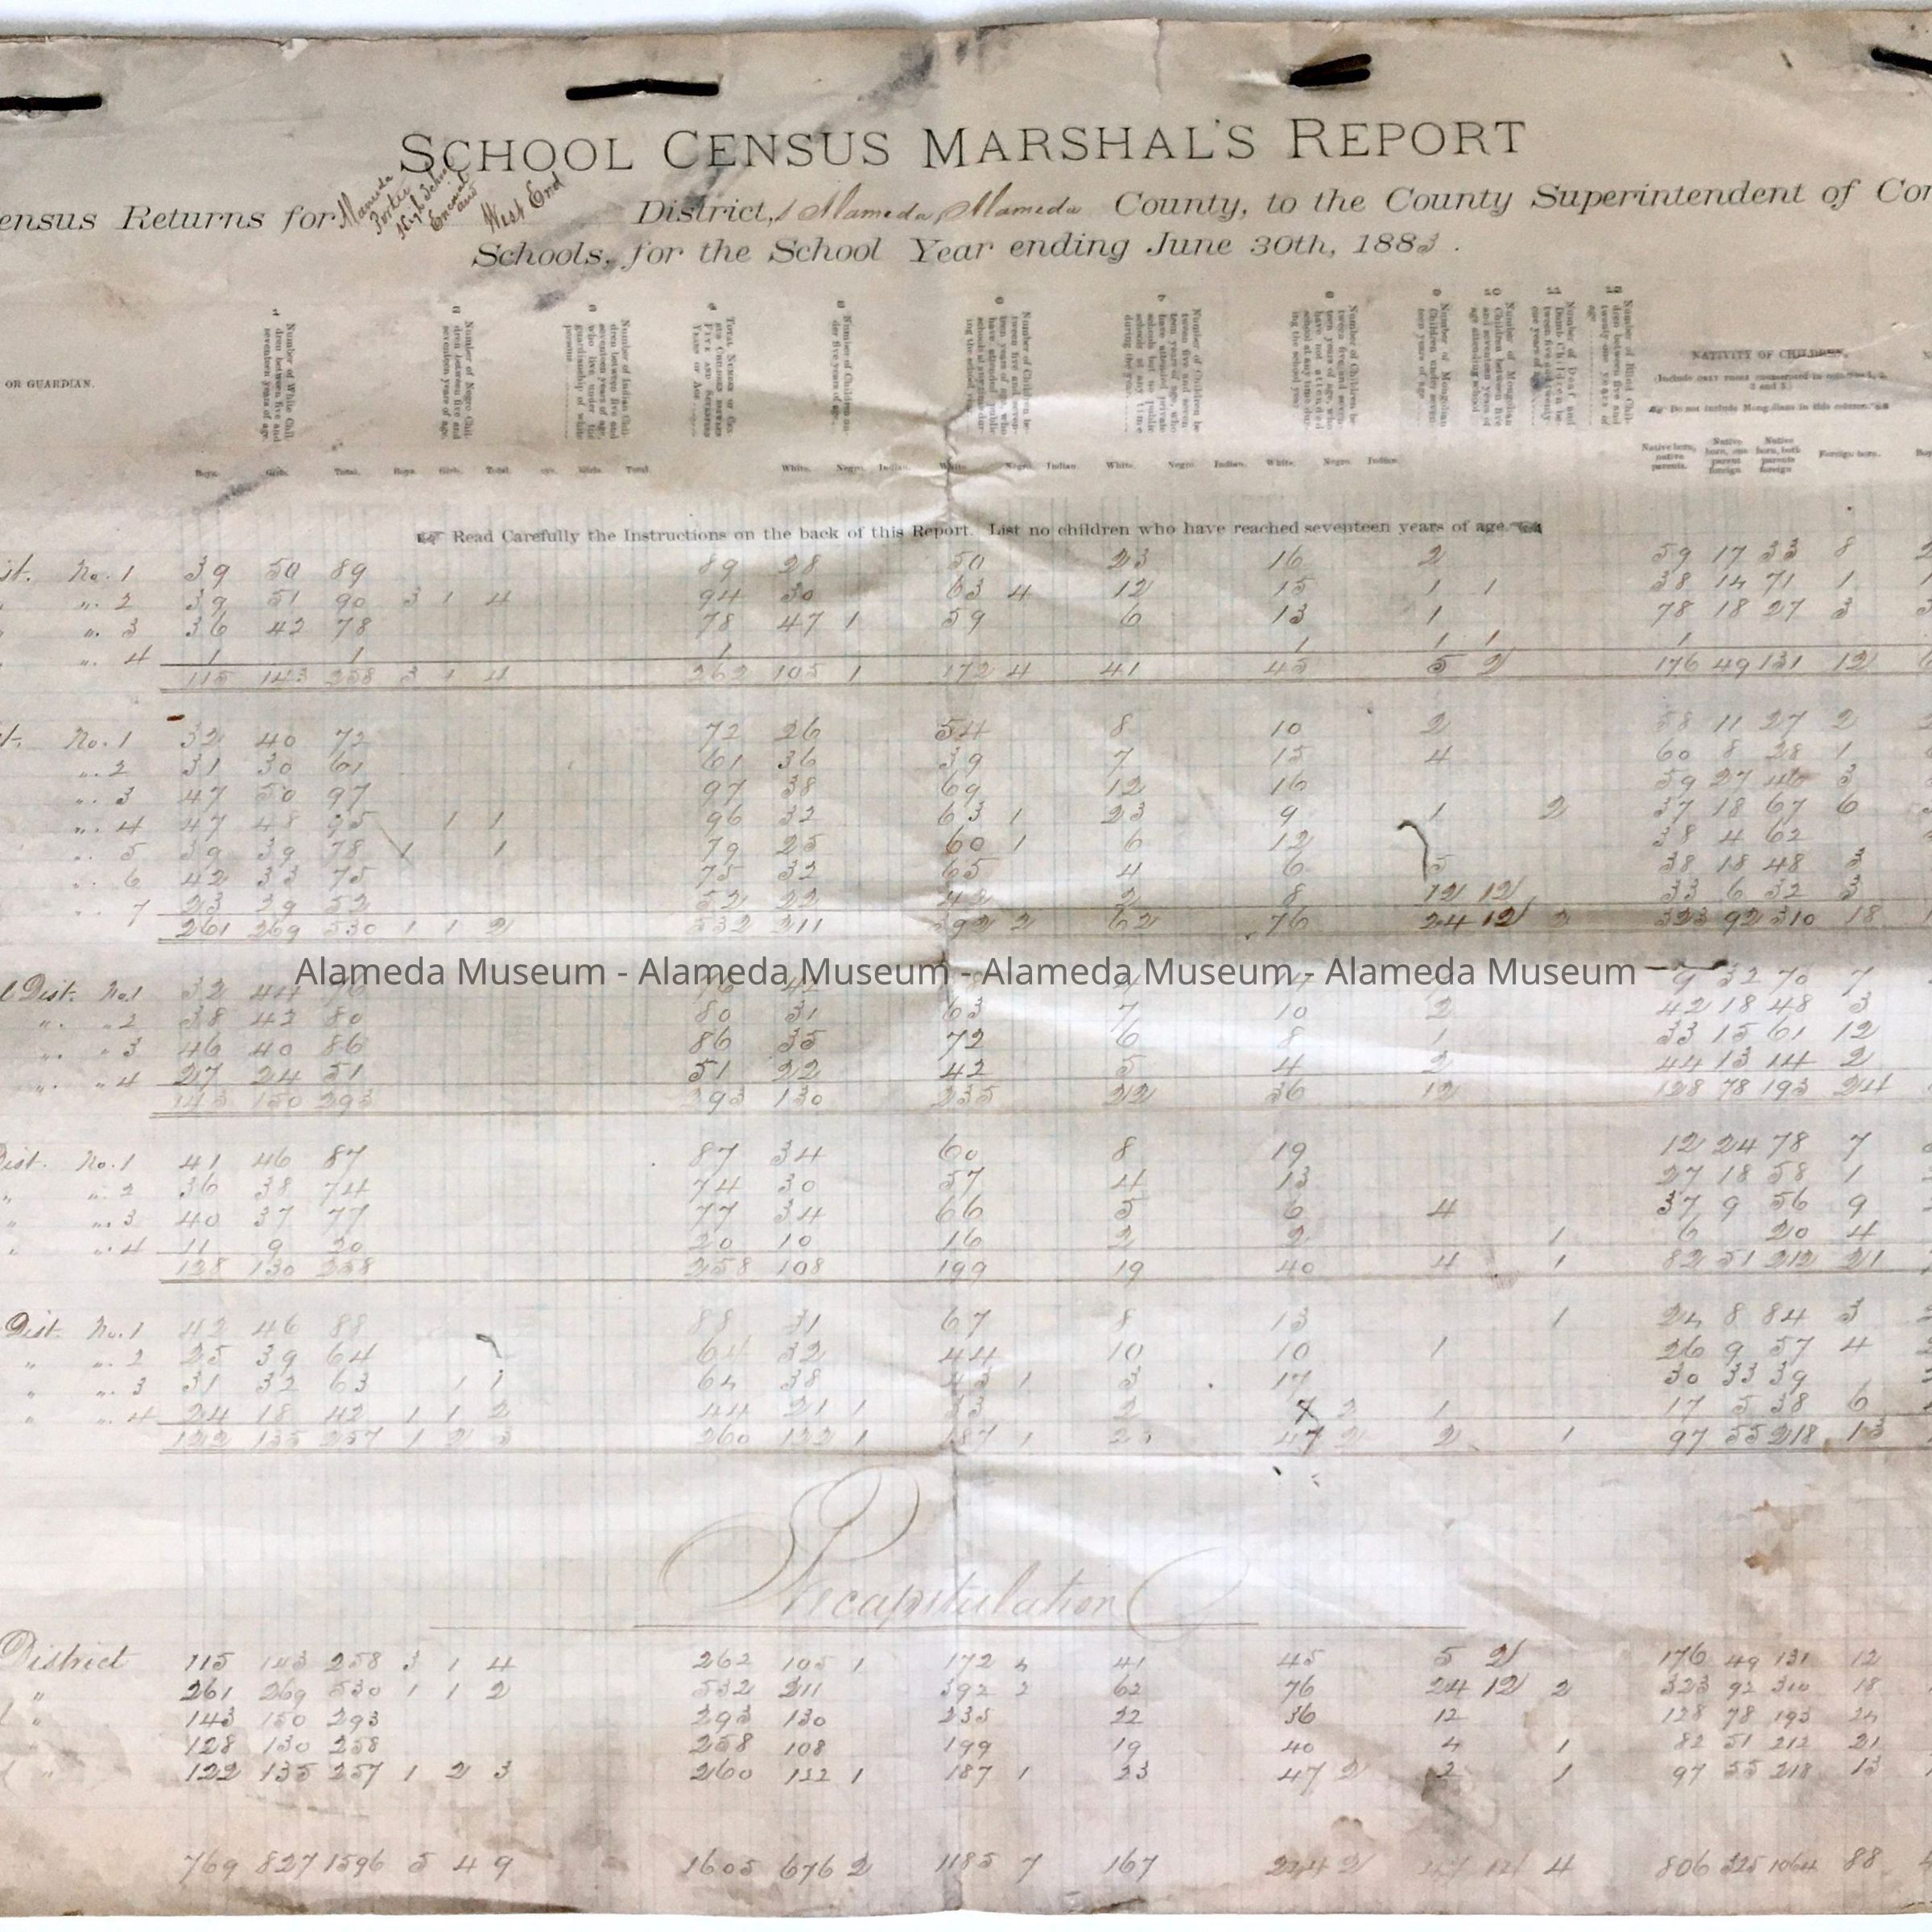 SCHOOL CENSUS MARSHAL'S REPORT
ensus Returns for Alameda Porter High School Encinal and West End District, Alameda, Alameda County, to the County Superintendent of Com
Schools, for the School Year ending June 30th, 1883.
OR GUARDIAN.
1 Number of White Children between five and seventeen years of age.
2 Number of Negro Children between five and seventeen years of age.
3 Number of Indian Children between five and seventeen years of age, who live under the guardianship of white persons
4 TOTAL NUMBER OF CENSUS CHILDREN BETWEEN FIVE AND SEVENTEEN YEARS OF AGE
5 Number of Children under five years of age
6 Number of Children between five and seventeen years of age, who have attended public schools at any time during the school year
7 Number of Children between five and seventeen years of age, who have attended private schools but no public schools at any time during the year
8 Number of Children between five and seventeen years of age, who have not attended school at any time during the school year
9 Number of Mongolian Children under seventeen years of age
10 Number of Mongolian Children between five and seventeen years of age attending school
11 Number of Deaf and Dumb Children between five and twenty-one years of age
12 Number of Blind Children between five and twenty one years of age
NATIVITY OF CHILDREN.
(Include ONLY THOSE enumerated in columns 1, 2, 3 and 5.)
Do not include Mongolians in this column.
Boys. Girls. Total. Boys. Girls. Total. Girls. Total. White. Negro. Indian. White. Negro. Indian. White. Negro. Indian. White. Negro. Indian. Native born, native parents. Native born, one parent foreign Native born, both parents foreign Foreign born.
Read Carefully the Instructions on the back of this Report. List no children who have reached seventeen years of age.
ist. No. 1 39 50 89 89 28 50 23 16 2 59 17 33 8
" 2 39 51 90 3 1 4 94 30 63 4 12 15 1 1 38 14 71 1
" 3 36 42 78 78 47 1 59 6 13 1 78 18 27 3
" 4 1 1 1 1 1 1 1
115 143 258 3 1 4 262 105 1 172 4 41 45 5 2 176 49 131 12
t. No. 1 32 40 72 72 26 54 8 10 2 58 11 27 2
" 2 31 30 61 61 36 39 7 15 4 60 8 28 1
" 3 47 50 97 97 38 69 12 16 59 27 46 3
" 4 47 48 95 1 1 96 32 63 1 23 9 1 2 37 18 67 6
" 5 39 39 78 1 1 79 25 60 1 6 12 38 4 62
" 6 42 33 75 75 32 65 4 6 5 38 18 48 3
" 7 23 29 52 52 22 42 2 8 12 12 33 6 32 3
261 269 530 1 1 2 532 211 392 2 62 76 24 12 2 323 92 310 18
Alameda Museum - Alameda Museum - Alameda Museum - Alameda Museum
l Dist. No. 1 32 44 76 9 32 70 7
" 2 38 42 80 80 31 63 7 10 2 42 18 48 3
" 3 46 40 86 86 35 72 6 8 1 33 15 61 12
" 4 27 24 51 51 22 42 5 4 2 44 13 14 2
143 150 293 293 130 235 22 36 12 128 78 193 24
Dist. No. 1 41 46 87 87 34 60 8 19 12 24 78 7
" 2 36 38 74 74 30 57 4 13 27 18 58 1
" 3 40 37 77 77 34 66 5 6 4 37 9 56 9
" 4 11 9 20 20 10 16 2 2 1 6 20 4
128 130 258 258 108 199 19 40 4 1 82 51 212 21
Dist. No. 1 42 46 88 88 31 67 8 13 1 24 8 84 3
" 2 25 39 64 64 32 44 10 10 1 26 9 57 4
" 3 31 32 63 1 1 64 38 43 1 3 17 30 33 39
" 4 24 18 42 1 1 2 44 21 1 33 2 7 2 1 17 5 38 6
122 135 257 1 2 3 260 122 1 187 1 23 47 2 2 1 97 55 218 13
Recapitulation
District 115 143 258 3 1 4 262 105 1 172 4 41 45 5 2 176 49 131 12
" 261 269 530 1 1 2 532 211 392 2 62 76 24 12 2 323 92 310 18
l " 143 150 293 293 130 235 22 36 12 128 78 193 24
128 130 258 258 108 199 19 40 4 1 82 51 212 21
l " 122 135 257 1 2 3 260 122 1 187 1 23 47 2 2 1 97 55 218 13
769 827 1596 5 4 9 1605 676 2 1185 7 167 244 2 4 806 325 1064 88